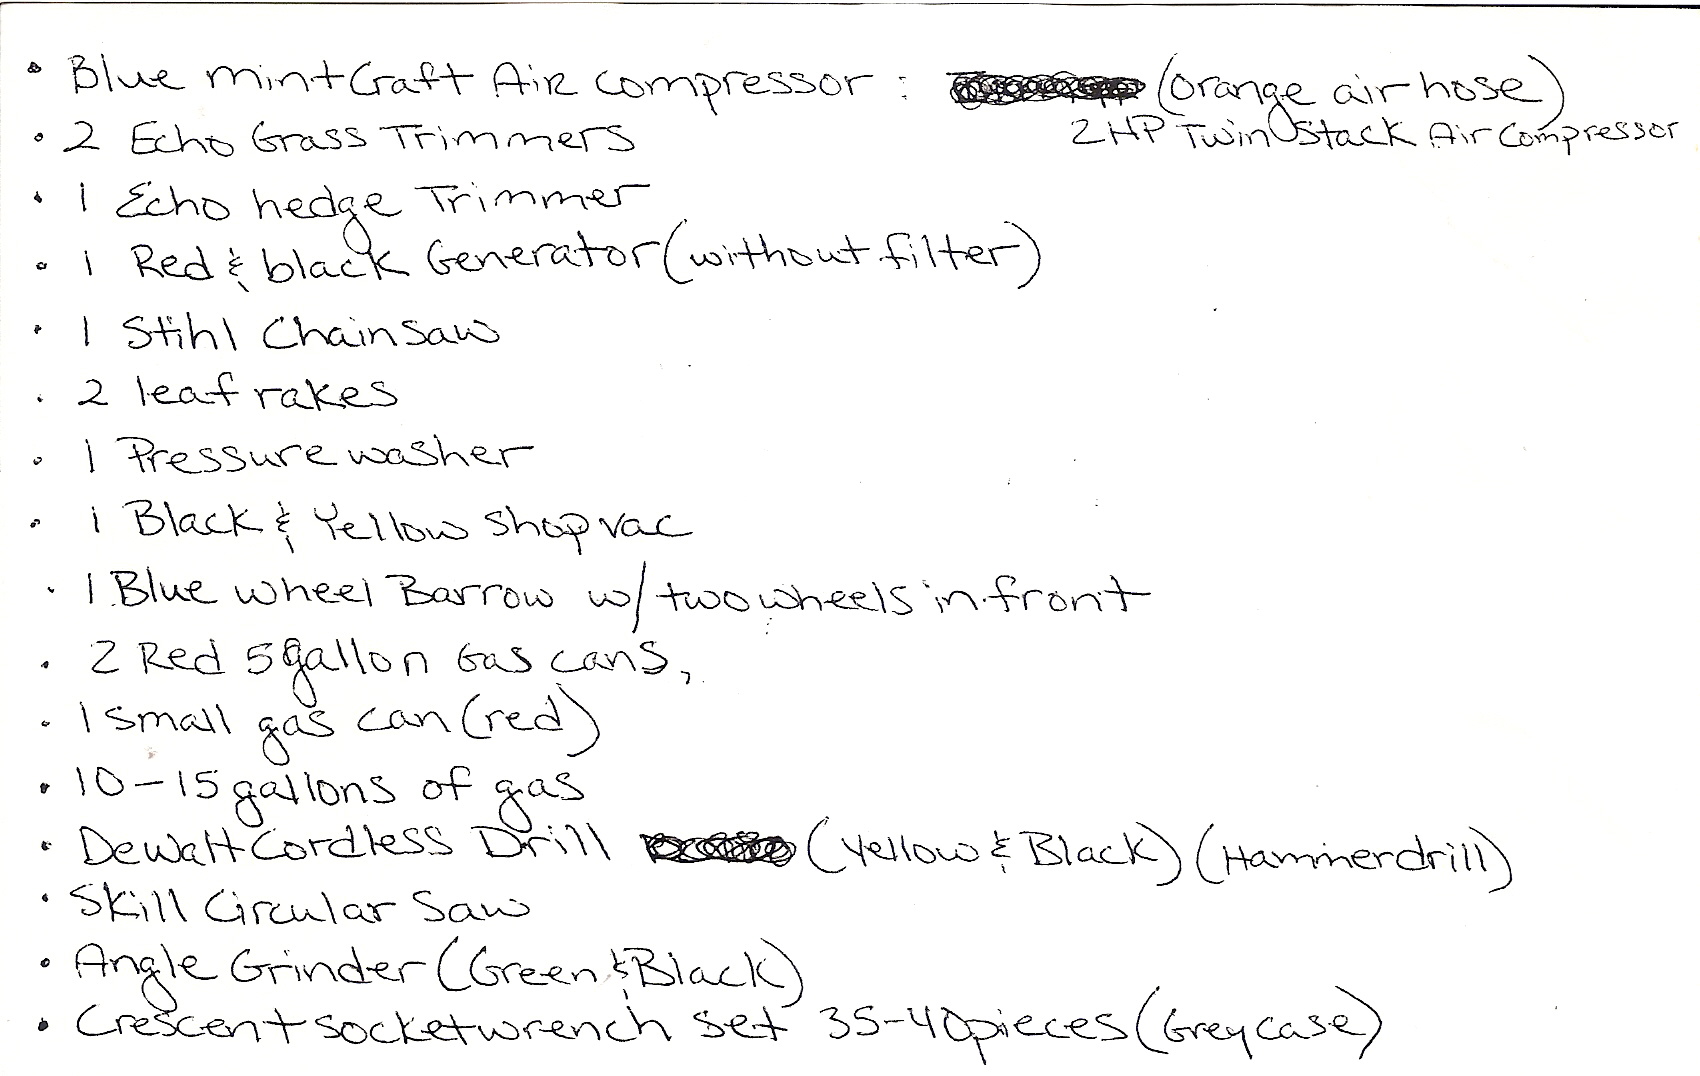 • Blue mintCraft Air compressor : (orange air hose)
2 HP Twin Stack Air Compressor
• 2 Echo Grass Trimmers
• 1 Echo hedge Trimmer
• 1 Red & black Generator (without filter)
• 1 Stihl Chainsaw
• 2 leaf rakes
• 1 Pressure washer
• 1 Black & Yellow shop vac
• 1 Blue wheel Barrow w/ two wheels in front
• 2 Red 5 gallon Gas cans,
• 1 small gas can (red)
• 10-15 gallons of gas
• Dewalt Cordless Drill (Yellow & Black) (Hammerdrill)
• Skill Circular Saw
• Angle Grinder (Green & Black)
• Crescent socket wrench set 35-40 pieces (Grey case)